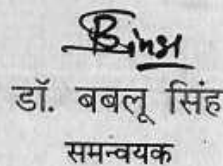 डॉ. बबलू सिंह
समन्वयक